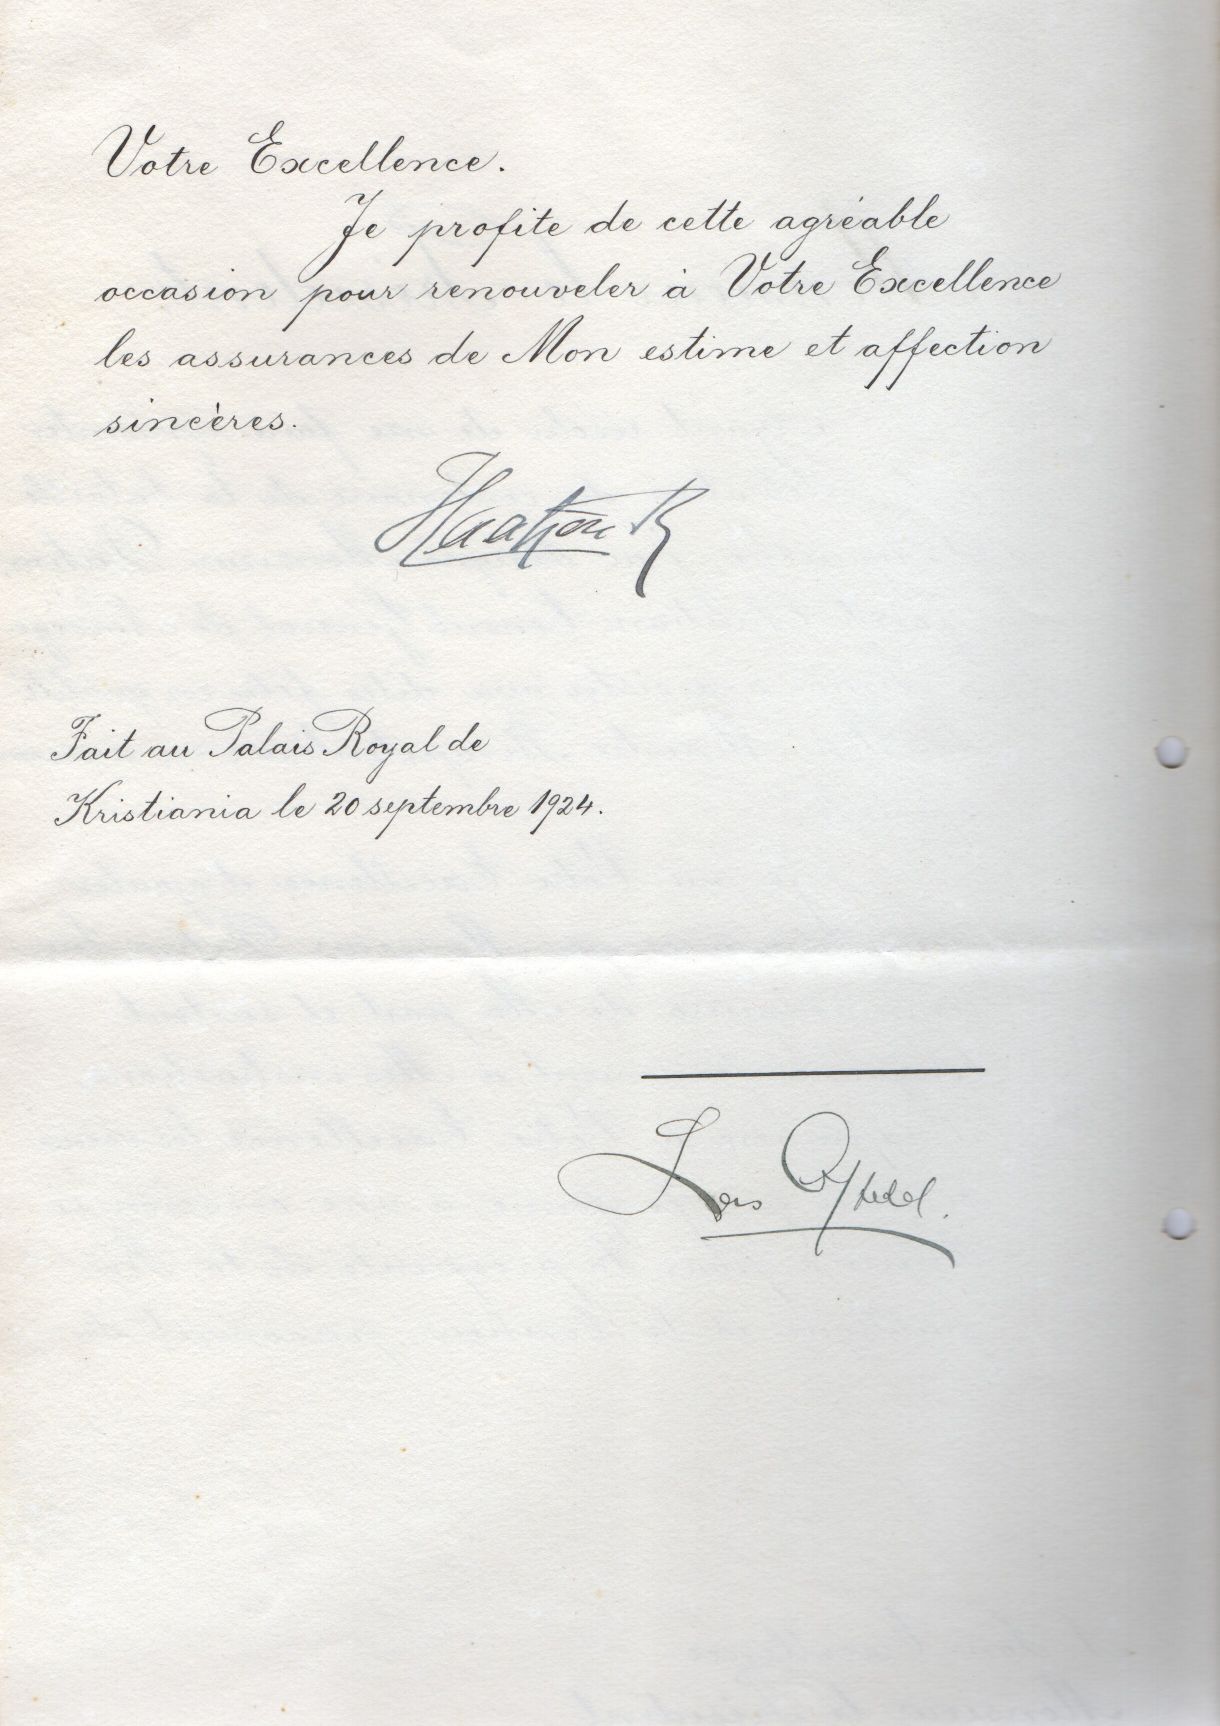 Votre Excellence.
Je profite de cette agréable
occasion pour renouveler à Votre Excellence
les assurances de Mon estime et affection
sincères.
Haakon R
Fait au Palais Royal de
Kristiania le 20 septembre 1924.